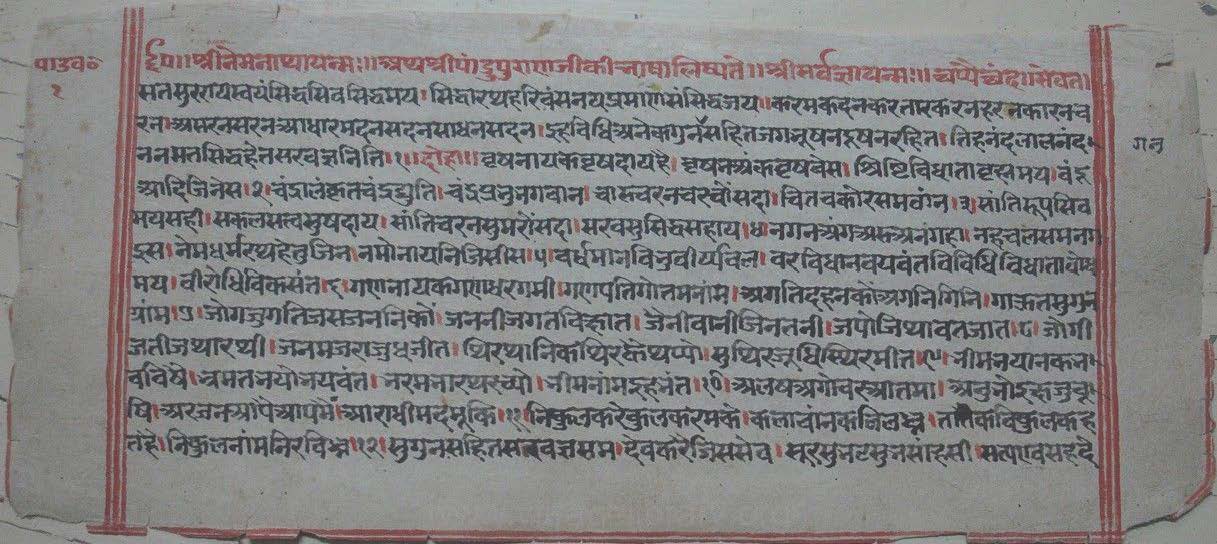 पांडव०
१
॥श्रीनेमनाथायनमः॥अथश्रीपांडुपुराणजीकीभाषालिष्यते॥श्रीसर्वज्ञायनमः॥छप्पैछंद॥सेवत
सतसुररायस्वयंसिद्धसिवसिद्धमय।सिद्धारथहरिवंसनयप्रमाणसंसिद्धजय।करमकदनकरतारकरनहरनकारनच
रन।असरनसरनआधारमदनसदनसाधनसदन।इहविधिअनेकगुनसहितजगभूषनदूषनरहित।तिहनंदलालनंद
ननमतसिद्धहेतसरवज्ञनिति।१।दोहा॥वृषनायकवृषदायहै।वृषनअंकवृषवेस।श्रिष्टिविधाताव्रह्ममय।वंदू
आदिजिनेस।२।चंद्रालंकृतचंद्रद्युति।चंद्रप्रभुभगवान।चारुचरनचरचौंसदा।चितचकोरसमवांन।३।सांतिरूपसिव
मयसही।सकलसत्वसुषदाय।सांतिचरनसुमरोंसदा।सरवसुसिद्धसहाय।४।नगनअंगअरुअनंगहा।नहचलसमनग
ईस।नेमधर्मरथहेतुजिन।नमोनायनिजिसीस।५।वर्धमानविभुवीर्यविल।वरविधानवयवंतविविधिविधाता
मय।वीरोधिविकसंत।६।गणनायकगणधरगमी।गणपतिगोतमनांम।अगतिदहनकोंअगनिगिनि।गाऊतसुगुन
ग्रांम।७।जोगजुगतिजसजननिकों।जननीजगतविख्यात।जैनीवानीजिनतनी।जपोजिथावतजात।८।जोगी
जतीजथारथी।जनमजराजुधजीत।थिरथानिकथिरकेथप्पो।सुथिरजुधिस्थिरमीत।९।भीमभयानकभव
वविषै।भ्रमतभयोभयवंत।भरमभारथरच्यो।भीमनांमइहभंत।१०।अलषअगोचरआतमा।
षि।अरजनआपैआपमै।आराधीमदमूकि।११।निकुलकरेकुलकरमकं।कलाचांनकजिलध्न।तातैकविकुलकह
तंहे।निकुलनांमनिरविघ्न।१२।सुगुनसहितसरवज्ञसम।देवकरैजिससेव।सूरसुभटसुभसांहसी।सत्यएवसहदै